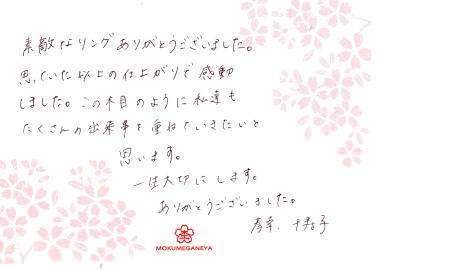 素敵なリングありがとうございました。
思っていた以上の仕上がりで感動
しました。この木目のように私達も
たくさんの出来事を重ねていきたいと
思います。
一生大切にします。
ありがとうございました。
MOKUMEGANEYA